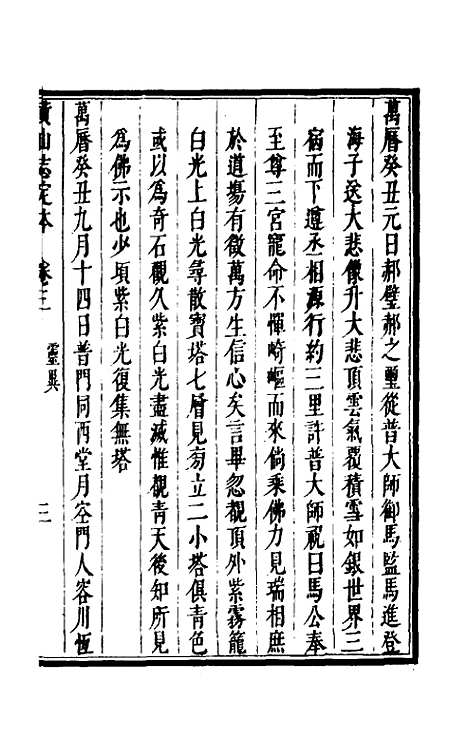 萬曆癸丑元日郝璧郝之璽從普大師御馬監馬進登
海子送大悲像升大悲頂雲氣覆積雪如銀世界三
宿而下遵丞相源行約三里許普大師祝曰馬公奉
至尊三宮寵命不憚崎嶇而來倘乘佛力見瑞相庶
於道塲有徵萬方生信心矣言畢忽覩頂外紫霧籠
白光上白光尋散寶塔七層見旁立二小塔俱青色
或以為奇石觀久紫白光盡滅惟覩青天後知所見
為佛示也少頃紫白光復集無塔
萬曆癸丑九月十四日普門同西堂月空門人容川恆
黃山志定本 卷之三 靈異 三